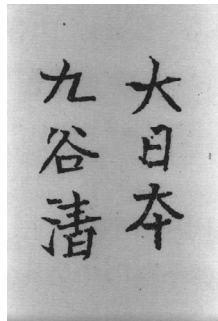 大日本
九谷清